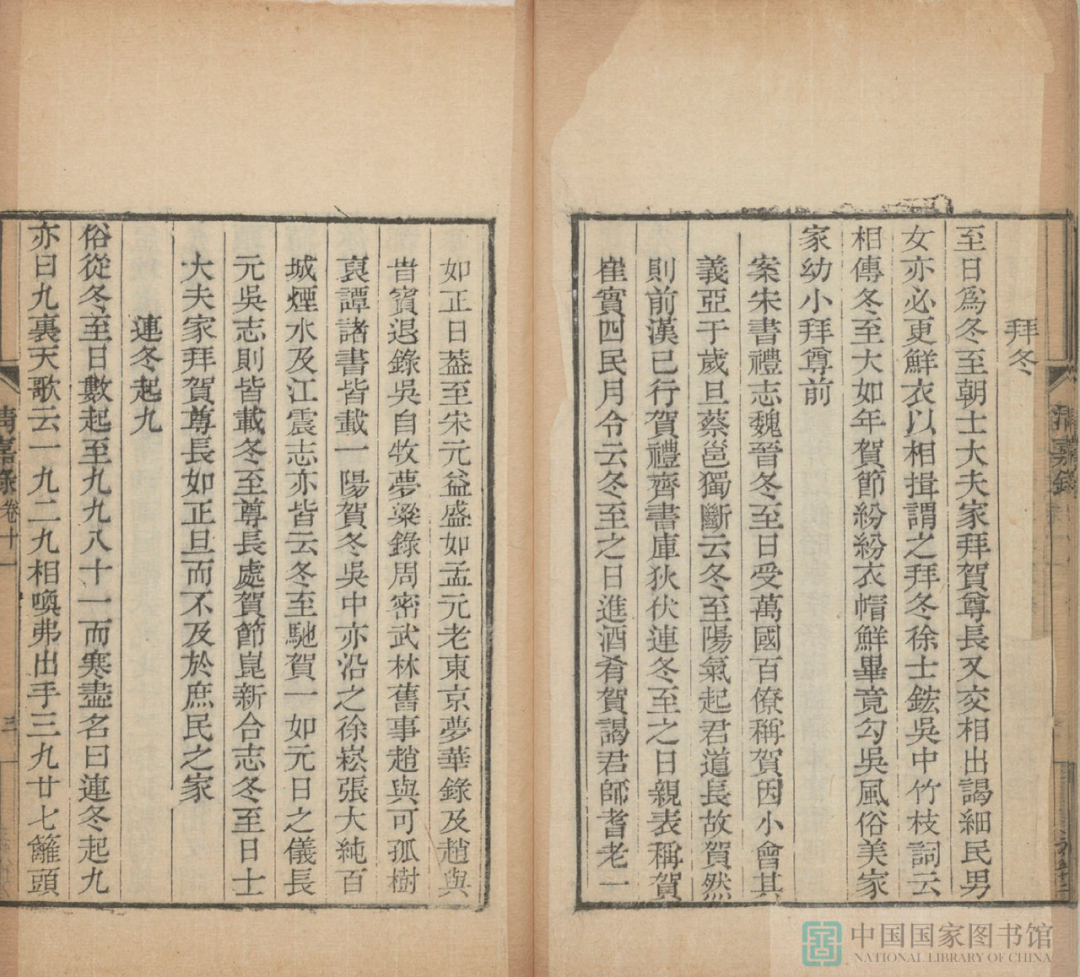 拜冬
至日為冬至朝士大夫家拜賀尊長又交相出謁細民男
女亦必更鮮衣以相揖謂之拜冬徐士鋐吳中竹枝詞云
相傳冬至大如年賀節紛紛衣帽鮮畢竟勾吳風俗美家
家幼小拜尊前
案宋書禮志魏晉冬至日受萬國百僚稱賀因小會其
義亞于歲旦蔡邕獨斷云冬至陽氣起君道長故賀然
則前漢已行賀禮齊書庫狄伏連冬至之日親表稱賀
崔實四民月令云冬至之日進酒肴賀謁君師耆老一
如正日葢至宋元益盛如孟元老東京夢華錄及趙與
旹賓退錄吳自牧夢粱錄周密武林舊事趙與可孤樹
裒譚諸書皆載一陽賀冬吳中亦沿之徐崧張大純百
城煙水及江震志亦皆云冬至馳賀一如元日之儀長
元吳志則皆載冬至尊長處賀節崑新合志冬至日士
大夫家拜賀尊長如正旦而不及於庶民之家
連冬起九
俗從冬至日數起至九九八十一而寒盡名曰連冬起九
亦曰九裏天歌云一九二九相喚弗出手三九廿七籬頭
清嘉錄
清嘉錄 卷十一
三
中国国家图书馆
NATIONAL LIBRARY OF CHINA